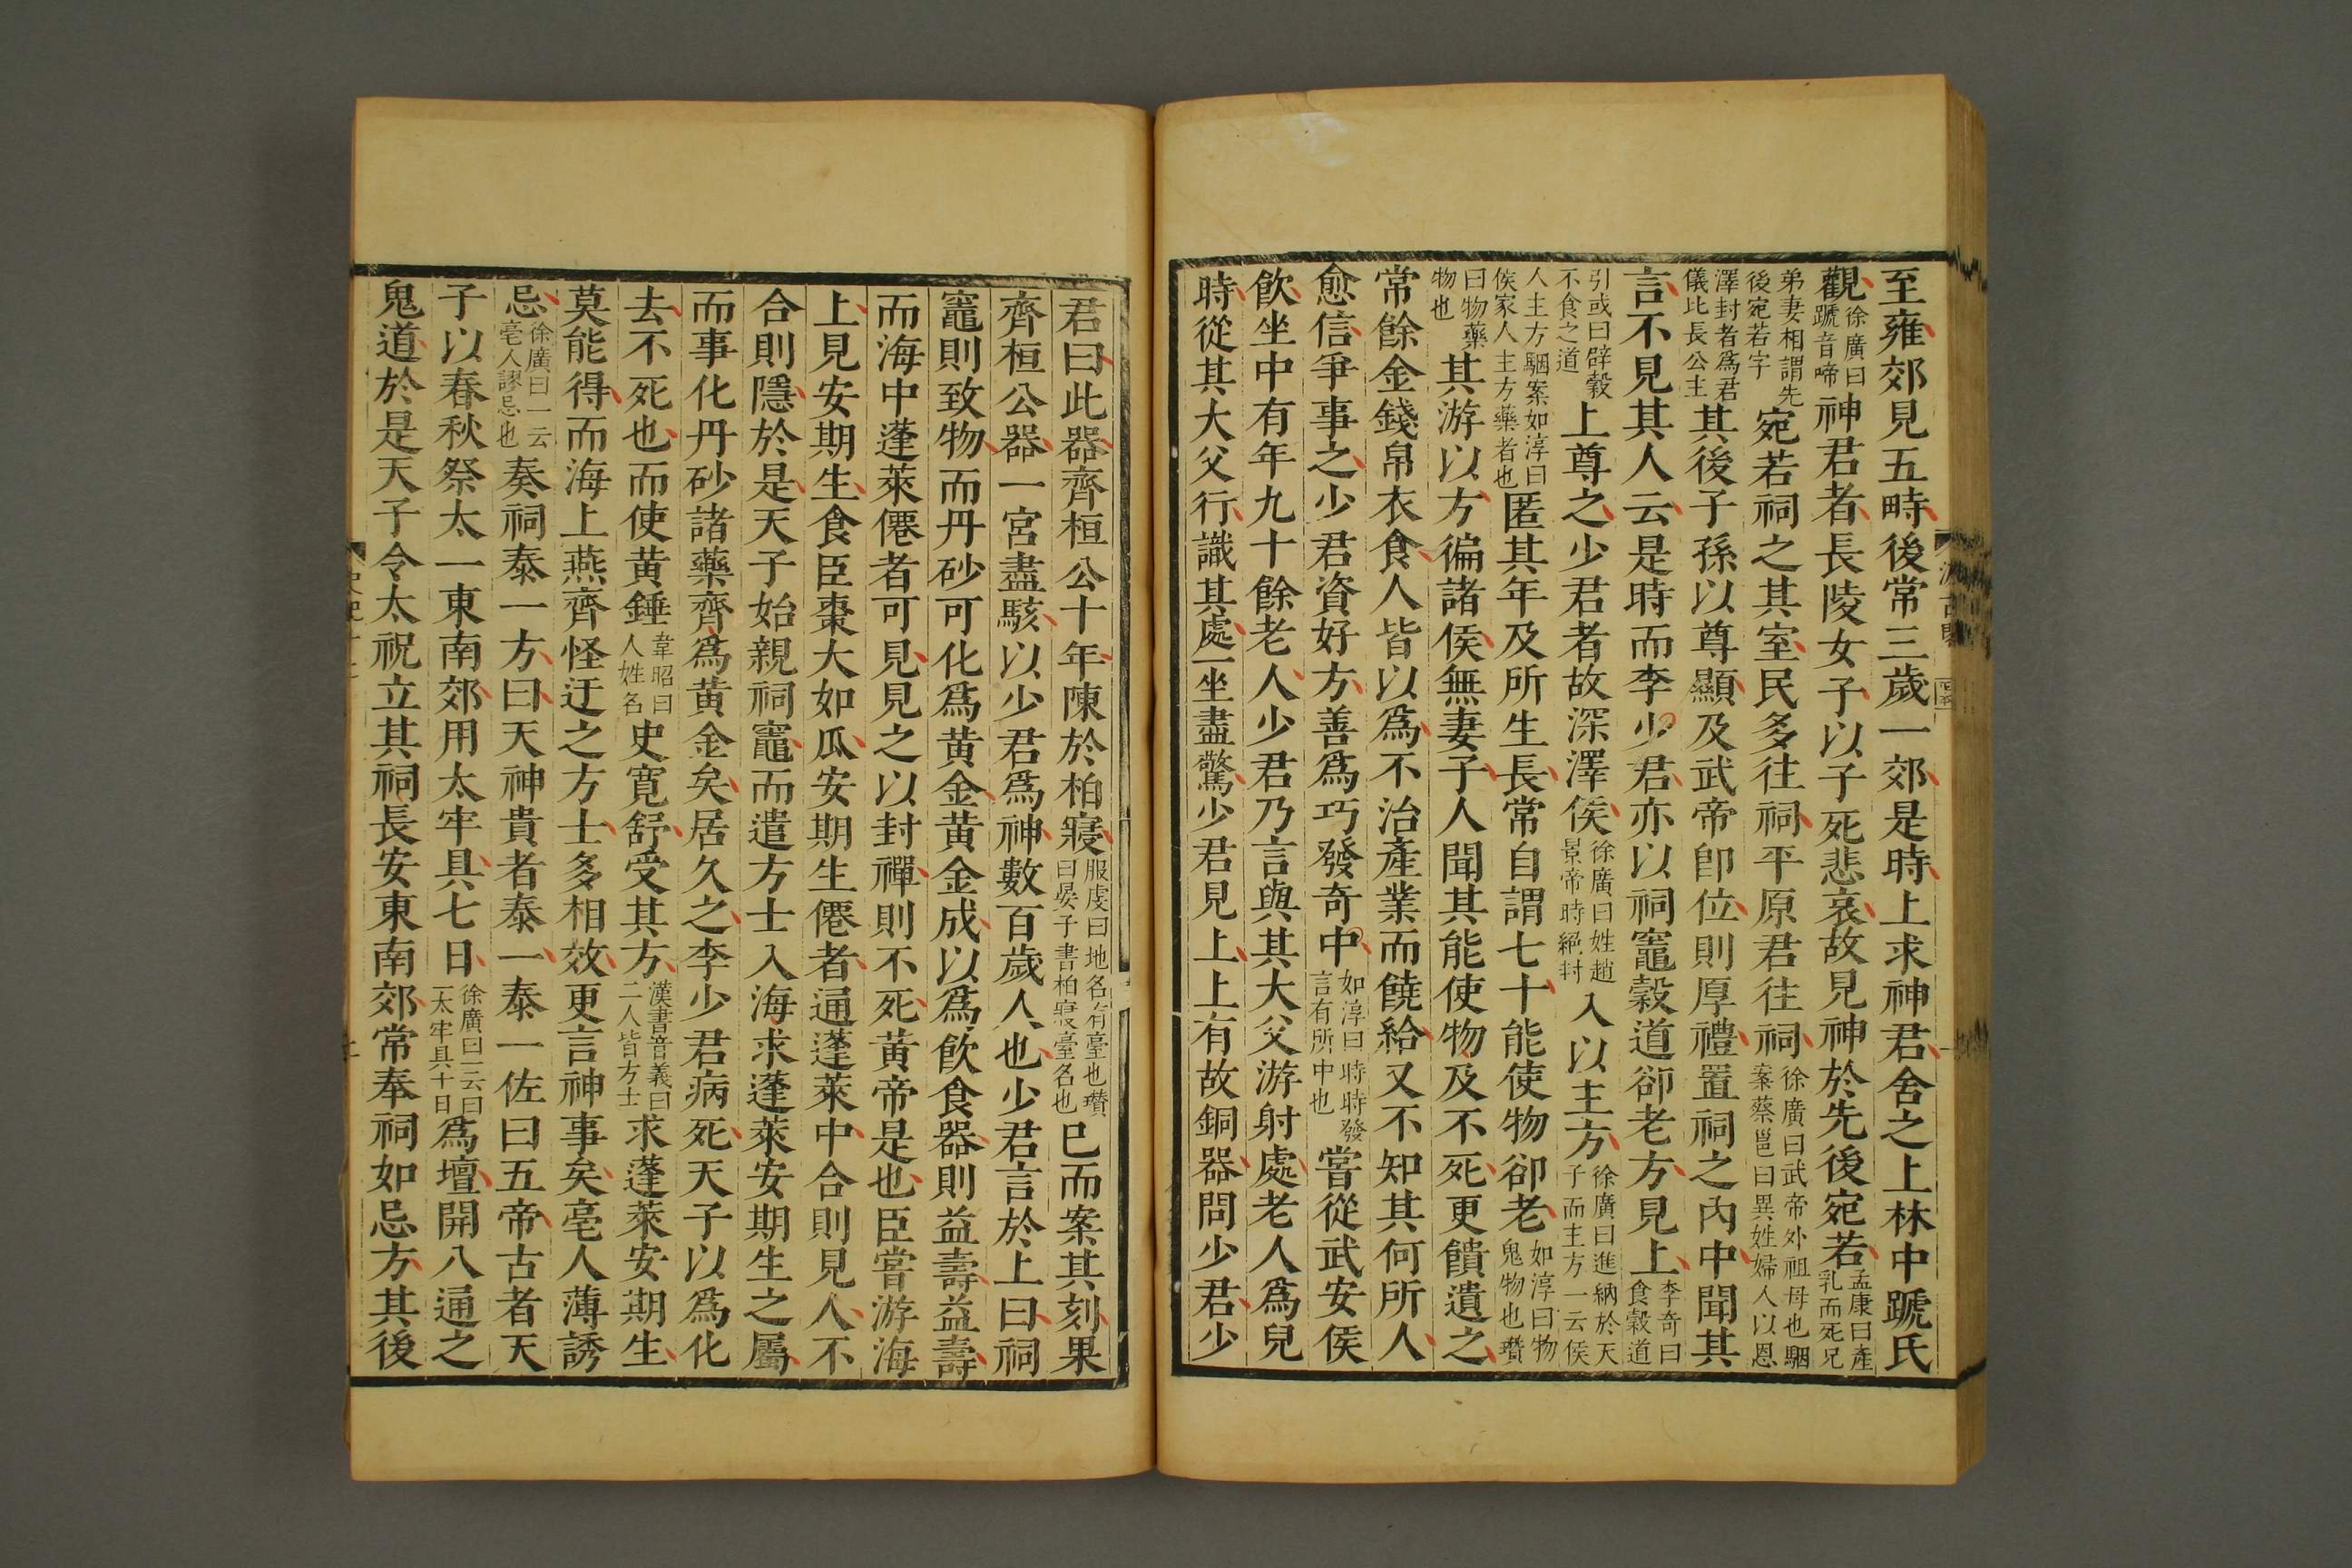 至雍郊見五畤後常三歲一郊是時上求神君舍之上林中蹏氏
觀徐廣曰蹏音啼神君者長陵女子以子死悲哀故見神於先後宛若孟康曰產乳而死兄
弟妻相謂先後宛若字宛若祠之其室民多往祠平原君往祠徐廣曰武帝外祖母也駰案蔡邕曰異姓婦人以恩
澤封者爲君儀比長公主其後子孫以尊顯及武帝卽位則厚禮置祠之內中聞其
言不見其人云是時而李少君亦以祠竈穀道卻老方見上李奇曰食穀道
引或曰辟穀不食之道上尊之少君者故深澤侯徐廣曰姓趙景帝時絕封入以主方徐廣曰進納於天子而主方一云侯
人主方駰案如淳曰侯家人主方藥者也匿其年及所生長常自謂七十能使物卻老如淳曰物鬼物也瓚
曰物藥物也其游以方徧諸侯無妻子人聞其能使物及不死更饋遺之
常餘金錢帛衣食人皆以爲不治產業而饒給又不知其何所人
愈信爭事之少君資好方善爲巧發奇中如淳曰時時發言有所中也嘗從武安侯
飲坐中有年九十餘老人少君乃言與其大父游射處老人爲兒
時從其大父行識其處一坐盡驚少君見上上有故銅器問少君少
君曰此器齊桓公十年陳於柏寢服虔曰地名有臺也瓚曰晏子書柏寢臺名也已而案其刻果
齊桓公器一宮盡駭以少君爲神數百歲人也少君言於上曰祠
竈則致物而丹砂可化爲黃金黃金成以爲飲食器則益壽益壽
而海中蓬萊僊者可見見之以封禪則不死黃帝是也臣嘗游海
上見安期生食臣棗大如瓜安期生僊者通蓬萊中合則見人不
合則隱於是天子始親祠竈而遣方士入海求蓬萊安期生之屬
而事化丹砂諸藥齊爲黃金矣居久之李少君病死天子以爲化
去不死也而使黃錘韋昭曰人姓名史寬舒受其方漢書音義曰二人皆方士求蓬萊安期生
莫能得而海上燕齊怪迂之方士多相效更言神事矣亳人薄誘
忌徐廣曰一云亳人謬忌也奏祠泰一方曰天神貴者泰一泰一佐曰五帝古者天
子以春秋祭太一東南郊用太牢具七日徐廣曰一云日一太牢具十日爲壇開八通之
鬼道於是天子令太祝立其祠長安東南郊常奉祠如忌方其後